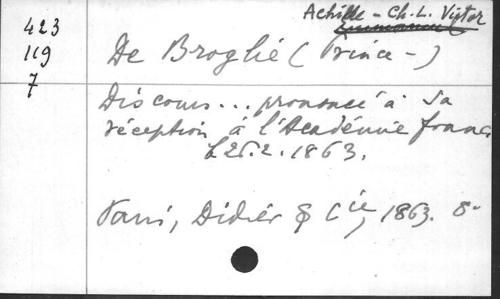 Achille - Ch. L. Victor
423
119
7
De Broglie (Prince -)
Discours... prononcé à sa
réception à l'Académie franç
le 26.2.1863.
Paris, Didier & Cie, 1863. 8°